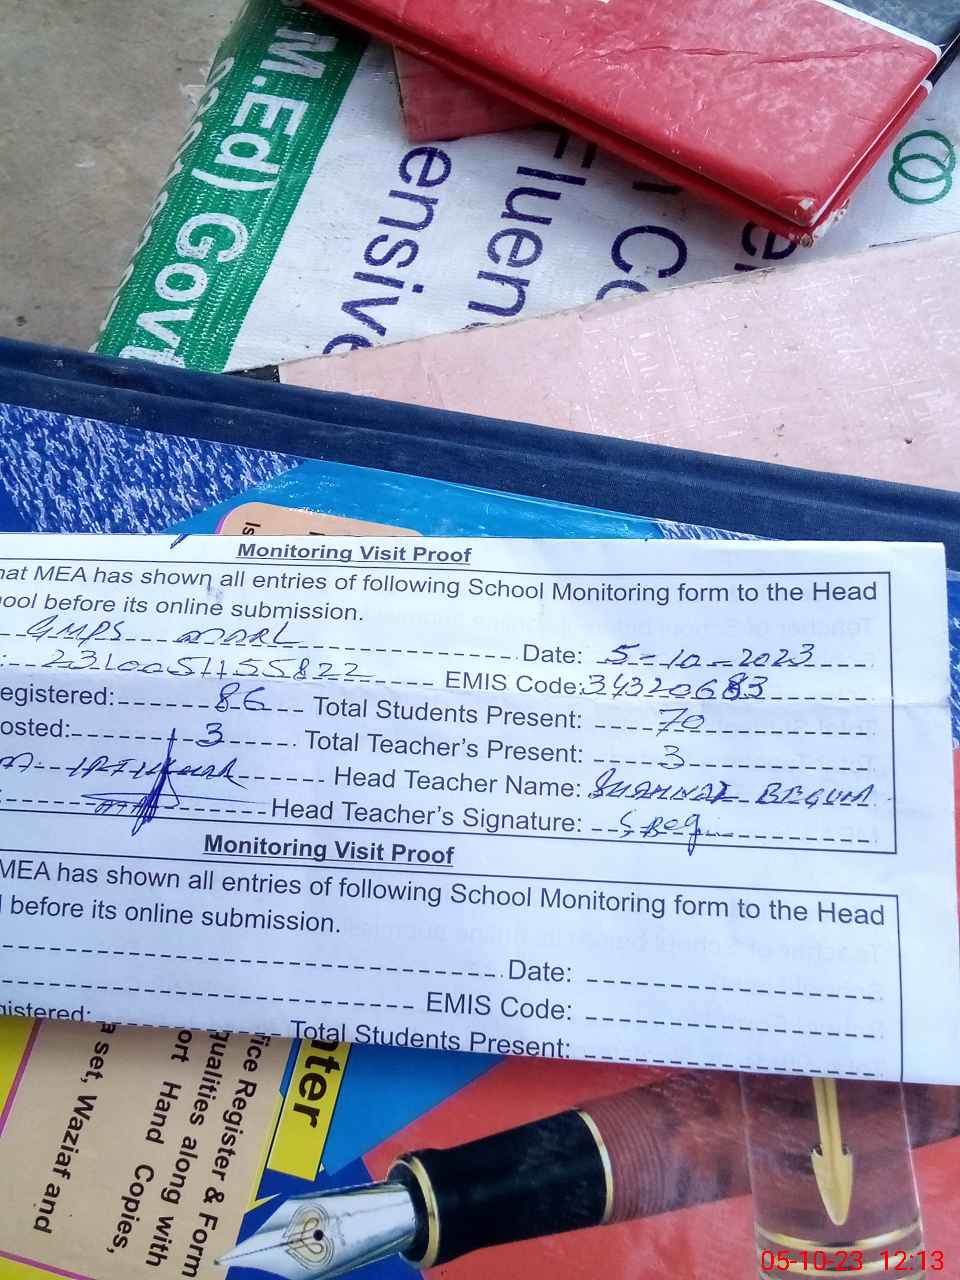 M.Ed) Govt
ensive
Fluen
Co
Monitoring Visit Proof
hat MEA has shown all entries of following School Monitoring form to the Head
hool before its online submission.
GMPS Date: 5-10-2023
EMIS Code:
egistered: 86 Total Students Present: 70
osted: 3 Total Teacher's Present: 3
Head Teacher Name: BEGUM
Head Teacher's Signature:
Monitoring Visit Proof
MEA has shown all entries of following School Monitoring form to the Head
l before its online submission.
Date:
EMIS Code:
gistered: Total Students Present:
nter
fice Register & Form
qualities along with
ort Hand Copies,
a set, Waziaf and
05-10-23 12:13